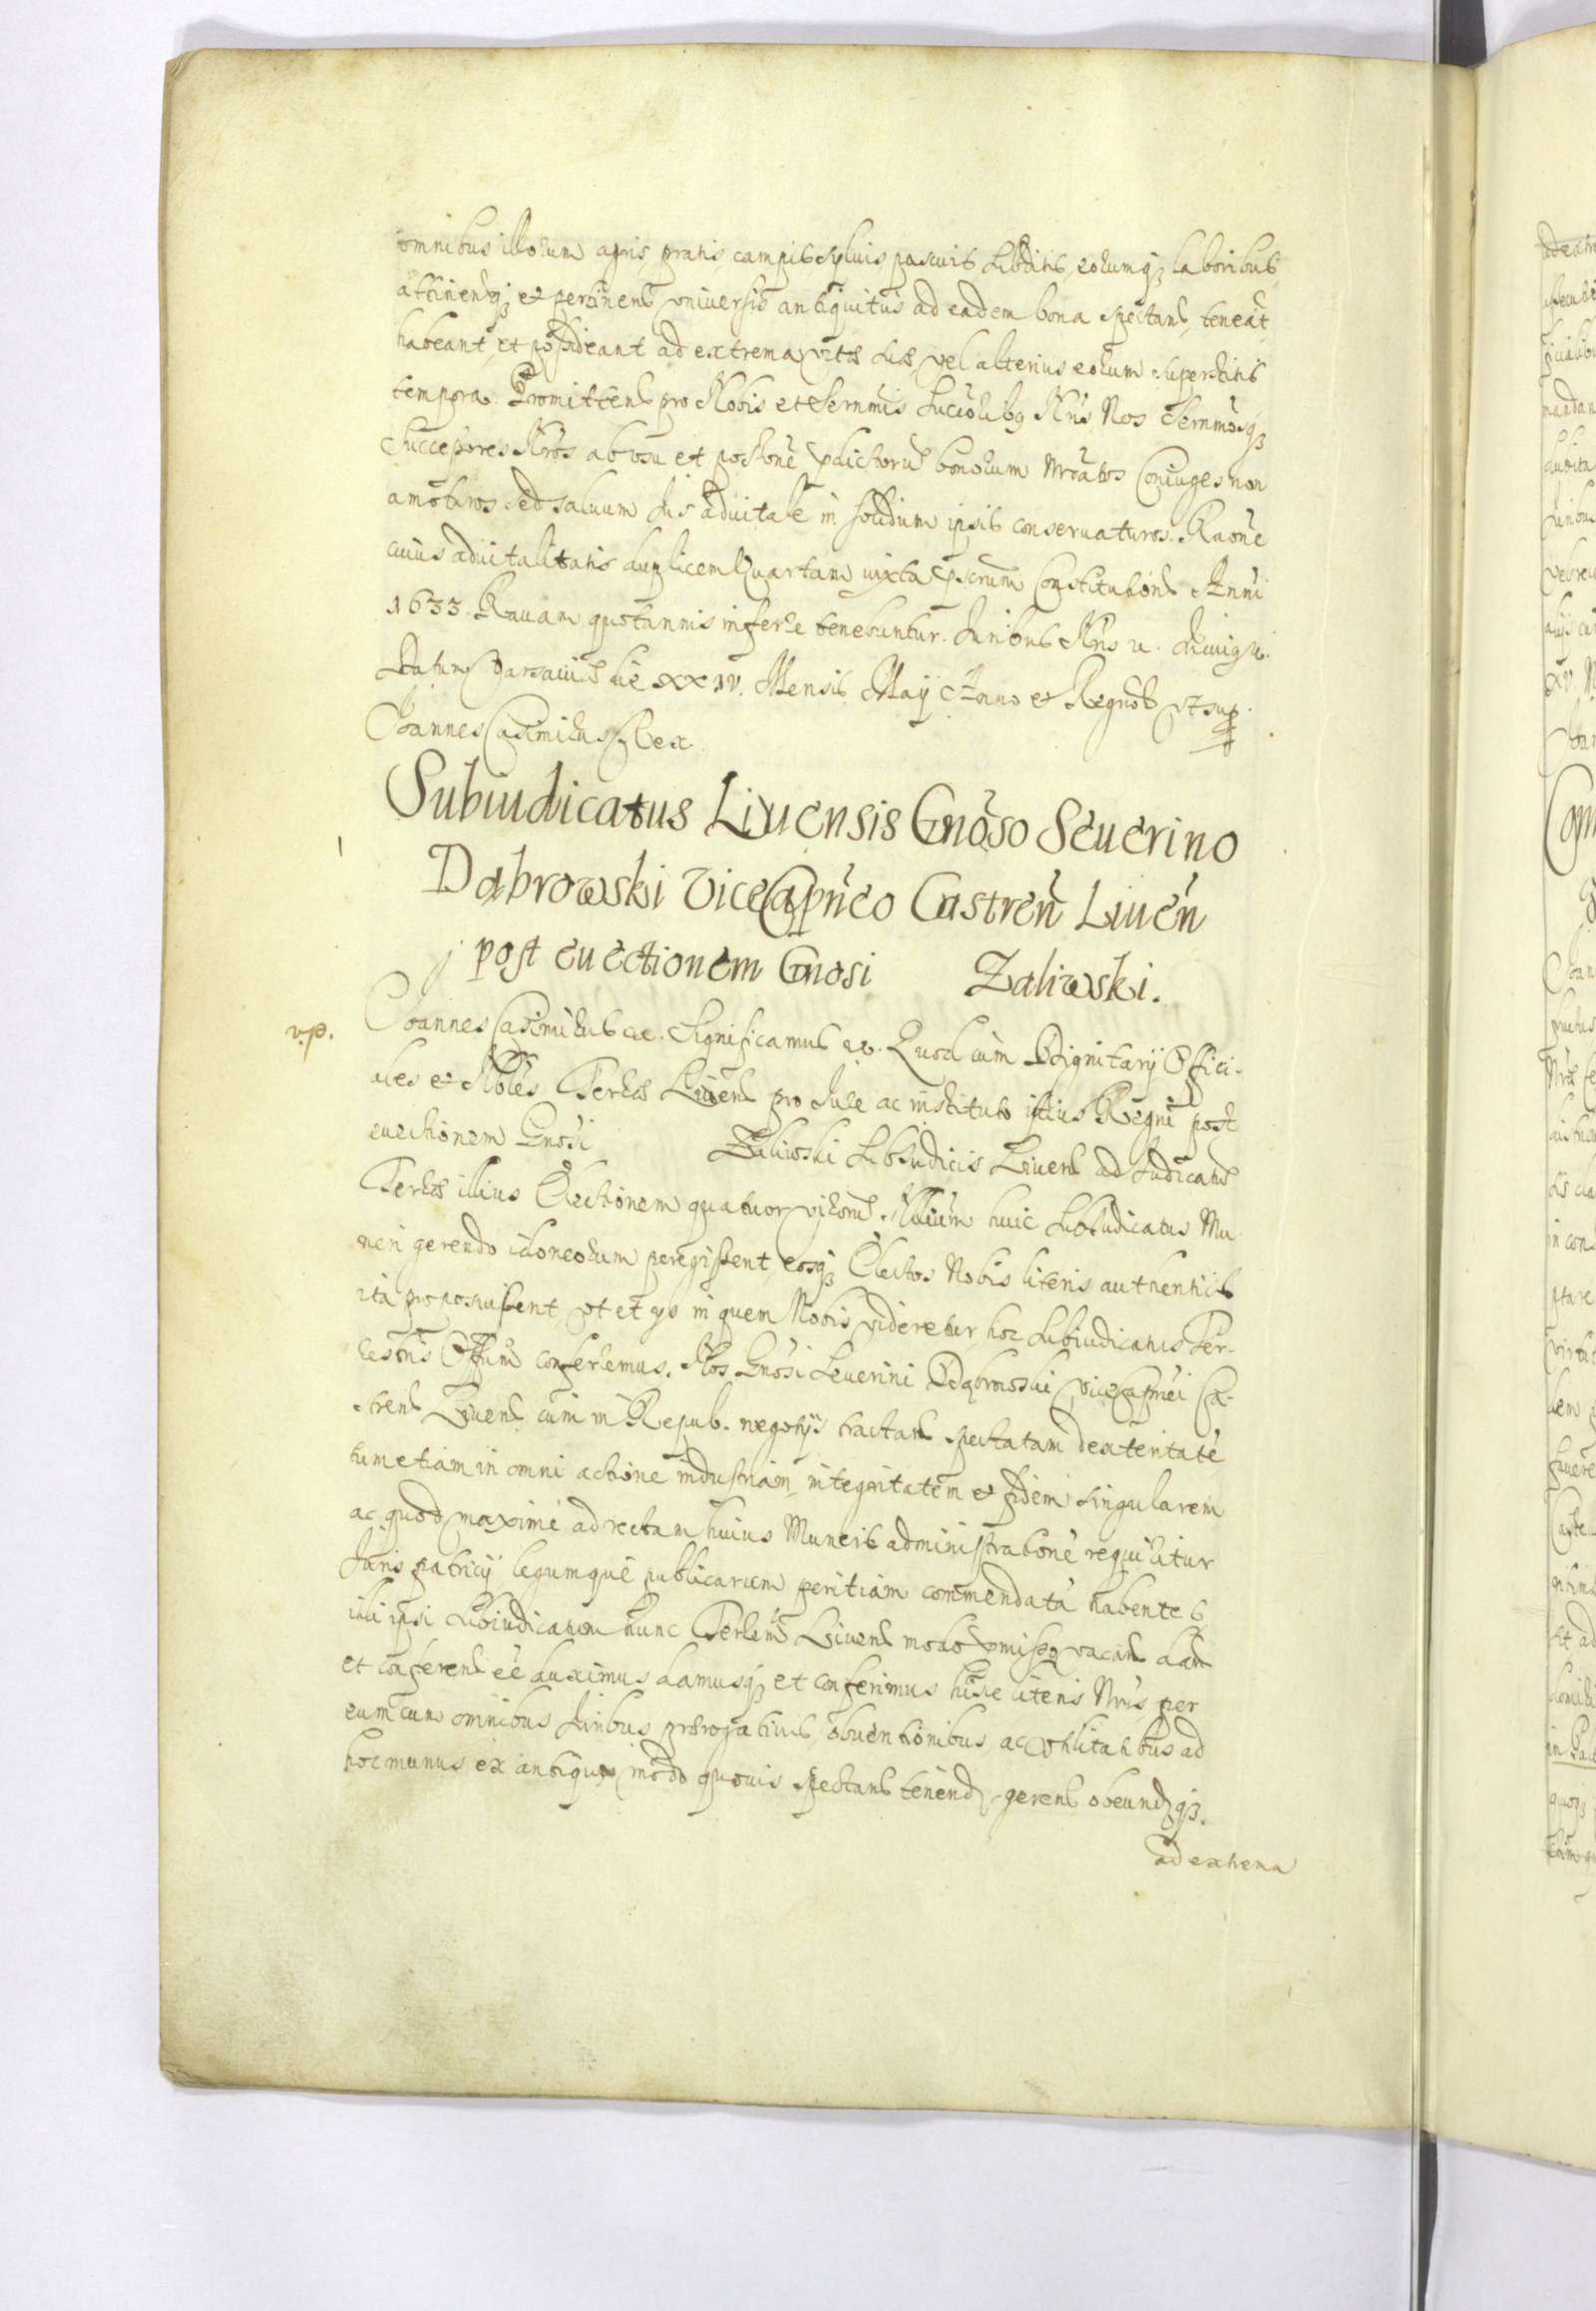 omnibus illorum agris, pratis campis sylvis pascuis subditis, eorumq; laboribus
attinenq; et pertinen universis antiquitus ad eadem bona spectan teneāt
habeant, et possideant ad extrema vitæ suæ, vel alterius eorum superstitis
tempora. Promitten pro Nobis et Sernmis Succōribq Nris Nos Sernmosq;
Successores Nros ab usu et possōne pdictorū bonorum mroātos Coniuges non
amoturos, sed salvum Jus aduitale in solidum ipsis conservaturos. Raōne
cuius advitalitatis duplicem Quartam iuxta pscrum Constitution Anni
1633. Ravam quotannis inferre tenebuntur. Juribus Nris R.
Datum Varsaviæ die XXIV. Mensis Maÿ Anno et Regnor ut sup.
Joannes Casimirus Rex
Subiudicatus Liuensis Gnōso Seuerino
Dąbrowski ViceCapneo Castren Liuen
post euectionem Gnosi Zaliwski.
v.p.
Joannes Casimirus etc. Significamus etc. Quod cum Dignitarÿ Offici-
ales et Nobles Terræ Liuen pro Jure ac instituto istius Regni post
euectionem Gnosi Zaliwski Subiudicis Liuen ad Judicatus
Terræ illius Electionem quatuor virorū Nbilium huic Subiudicatus Mu
neri gerendo idoneorum peregissent, eosq; Electos Nobis literis authenticis
ita proposuissent, ut ex ijs in quem Nobis videretur, hoc Subiudicatus Ter-
restris Offium conferremus. Nos Gnosi Seuerini Dąbrowski ViceCapnei Ca-
stren Liuen cum in Repub. negotÿs tractan spectatam dexteritatē
tum etiam in omni actione industriam, integritatem et fidem singularem
ac quod maxime ad rectam huius Muneris administrationē requiritur
Juris patricÿ legumque publicarum peritiam commendatā habentes
illi ipsi Subiudicatum hunc Terren Liuen modo pmisso vacan dan
et conferen eē duximus damusq; et conferimus hisce literis Nris per
eum cum omnibus Juribus prerogativis, obventionibus, ac Utilitatibus ad
hoc munus ex antiquo modo quovis spectan tenend, geren obeundq;.
ad extrema